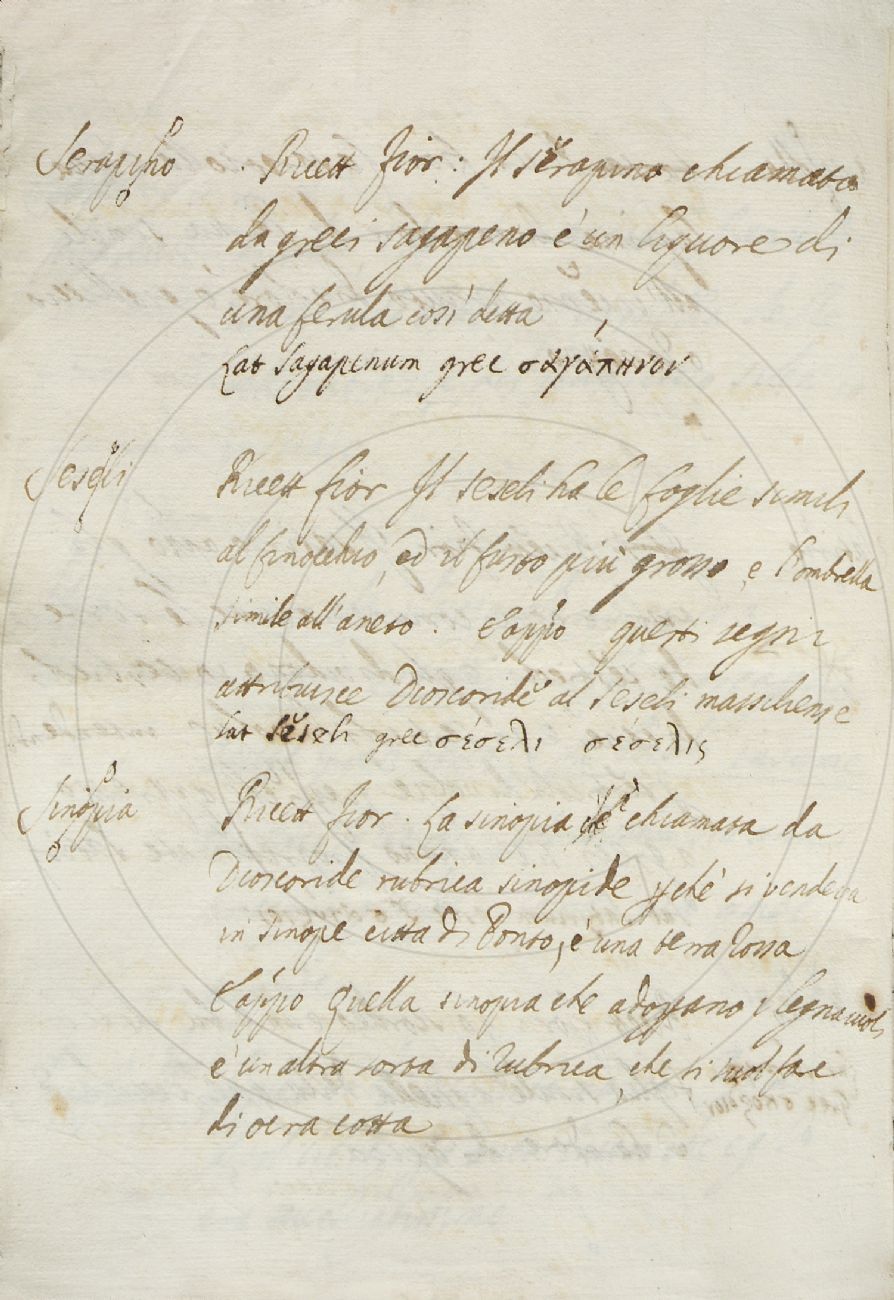 Serapino
Ricett fior: Il serapino chiamato
da greci sagapeno é un liquore di
una ferula così detta
Lat Sagapenum grec σαγάπηνον
Seseli
Ricett fior Il seseli ha le foglie simili
al finocchio, ed il fusto più grosso, e l'ombrella
simile all'aneto. E app.o questi segni
attribuisce Dioscoride al seseli massiliense
Lat Seseli grec σέσελι σέσελις
Sinopia
Ricett fior. La sinopia è chiamata da
Dioscoride rubrica sinopide pché si vendeva
in Sinope città di Ponto, é una terra rossa
E app.o Quella sinopia che adoprano i legnaiuoli
é un altra sorta di rubrica, che si suol fare
di ocra cotta